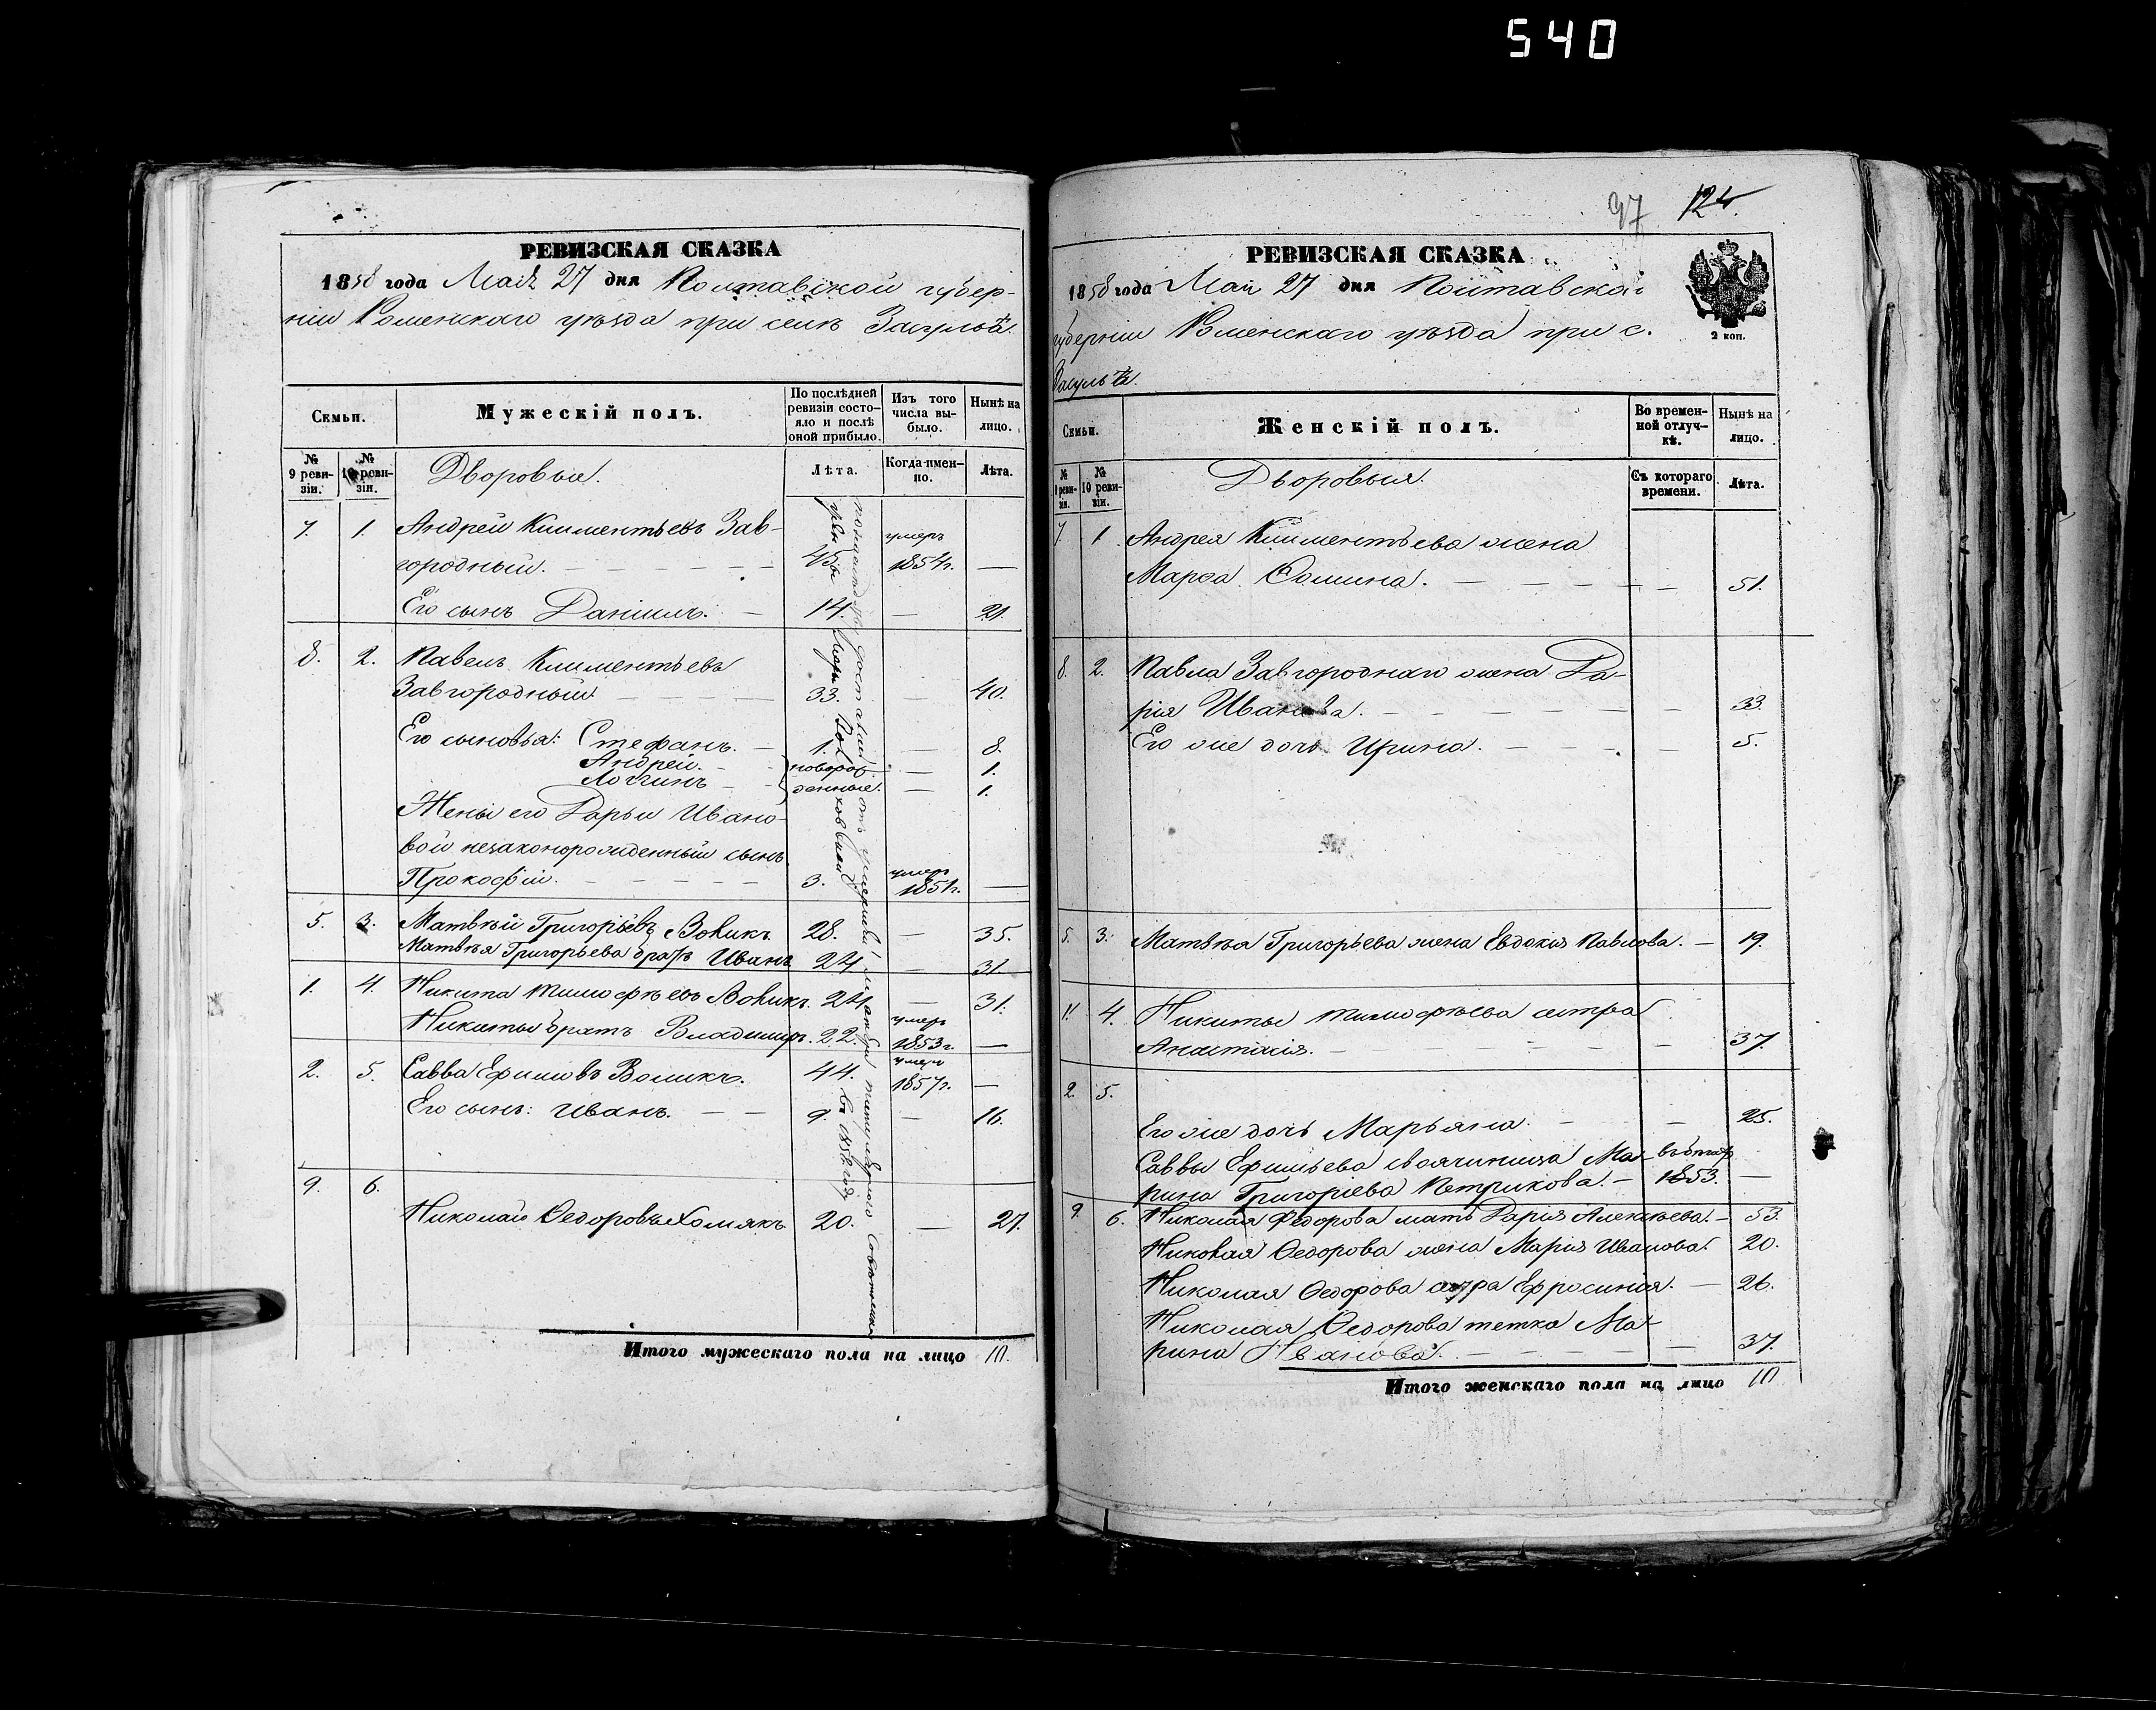 540
РЕВИЗСКАЯ СКАЗКА
1858 года Мая 27 дня Полтавской губер-
ніи Роменскаго уѣзда при селѣ Засульѣ.
Семьи.
Мужескій полъ.
По послѣдней
ревизіи состо-
яло и послѣ
оной прибыло.
Изъ того
числа вы-
было.
Нынѣ на
лицо.
№
9 реви-
зіи.
№
10 реви-
зіи.
Дворовые.
Лѣта.
Когда имен-
но.
Лѣта.
7. 1. Андрей Климентьевъ Зав-
городный. 45 умеръ 1854г. —
Его сынъ Даніилъ. — 14. — 21.
8. 2. Павелъ Климентьевъ
Завгородный 33. — 40.
Его сыновья: Стефанъ. — 1. — 8.
Андрей. новорож- — 1.
Логгинъ денные. — 1.
Жены его Дарьи Ивано-
вой незаконорожденный сынъ
Прокофій. 3. умеръ 1851г. —
5. 3. Матвѣй Григорьевъ Воликъ 28. — 35.
Матвѣя Григорьева братъ Иванъ 24 — 31
1. 4. Никита Тимофѣевъ Воликъ. 24 — 31.
Никиты братъ Владимиръ. 22. умеръ 1853г. —
2. 5. Савва Ефимовъ Воликъ. 44. умеръ 1857г. —
Его сынъ: Иванъ. — — 9. — 16.
9. 6.
Николай Ѳедоровъ Хомякъ 20. — 27.
Итого мужескаго пола на лицо 10.
97 124.
РЕВИЗСКАЯ СКАЗКА
1858 года Мая 27 дня Полтавской
губерніи Роменскаго уѣзда при с.
Засульѣ.
2 коп.
Семьи.
Женскій полъ.
Во времен-
ной отлуч-
кѣ.
Нынѣ на
лицо.
№
9 реви-
зіи.
№
10 реви-
зіи.
Дворовыя.
Съ котораго
времени.
Лѣта.
7. 1 Андрея Климентьева жена
Марфа Фомина. — — 51.
8. 2. Павла Завгороднаго жена Да-
рія Иванова. — — 33.
Его же дочь Ирина. — — 5.
5. 3. Матвѣя Григорьева жена Евдокія Павлова. — 19.
1. 4. Никиты Тимофѣева сестра
Анастасія. — — 37.
2. 5.
Его же дочь Марьяна. — — 25.
Саввы Ефимьева своячиница Ма-
рина Григоріева Петрикова. — 1853. —
9. 6. Николая Федорова мать Дарія Алексѣева. — 53.
Николая Ѳедорова жена Марія Иванова. 20.
Николая Ѳедорова сестра Ефросинія. — 26.
Николая Ѳедорова тетка Ма-
рина Иванова. — — 37.
Итого женскаго пола на лицо 10